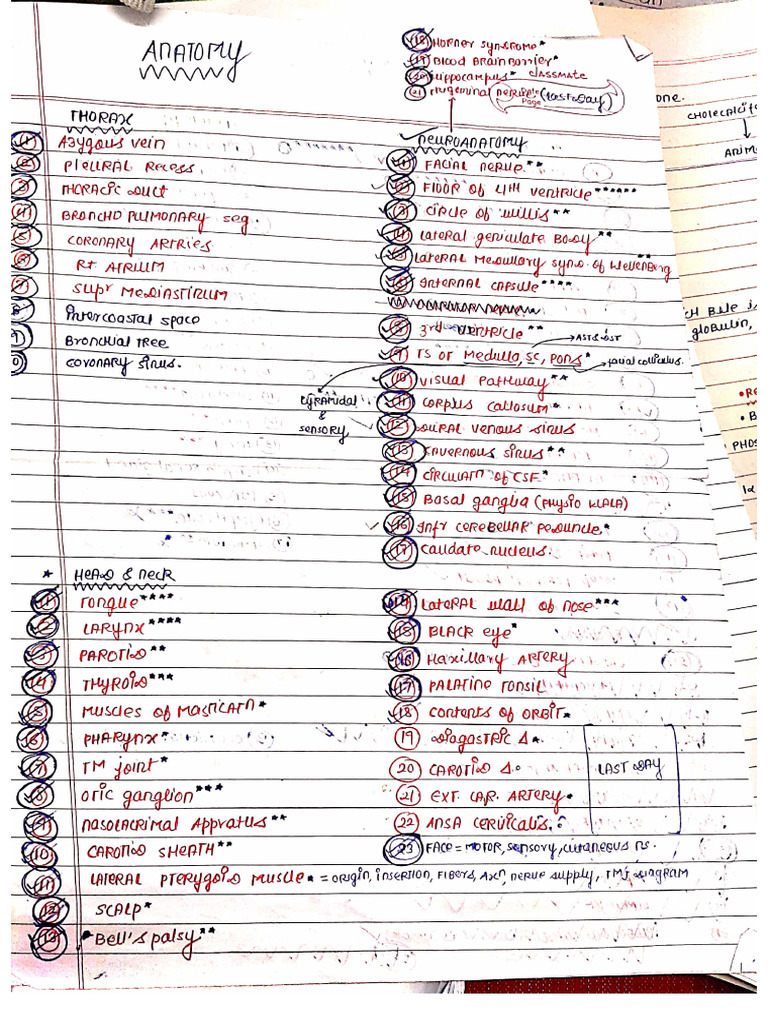 ANATOMY
(18) HORNER SYNDROME*
(19) BLOOD BRAIN BARRIER*
(20) Hippocampus* CLASSMATE
(21) Trigeminal nerve* (LAST DAY)
Page
THORAX
(1) Azygous vein
(2) PLEURAL RECESS.
(3) THORACIC DUCT
(4) BRONCHO PULMONARY seg.
(5) CORONARY ARTRIES
(6) Rt ATRIUM
(7) SUPR MEDIASTINUM
Intercoastal space
BRONCHIAL TREE
CORONARY SINUS.
✓ NEUROANATOMY
(1) FACIAL NERVE**
(2) FLOOR OF 4TH VENTRICLE******
(3) CIRCLE OF WILLIS**
(4) LATERAL GENICULATE BODY**
(5) LATERAL MEDULLARY SYND. OF WELLENBERG**
(6) INTERNAL CAPSULE****
(8) 3rd VENTRICLE**
(9) TS OF MEDULLA, SC, PONS*
facial colliculus.
(10) VISUAL PATHWAY**
PYRAMIDAL
&
SENSORY
(11) CORPUS CALLOSUM*
(12) DURAL VENOUS SINUS
(13) CAVERNOUS SINUS**
(14) CIRCULATN OF CSF*
(15) BASAL GANGLIA (PHYSIO WALA)
(16) INFR CEREBELLAR PEDUNCLE*
(17) CAUDATE NUCLEUS.
* HEAD & NECK
(1) TONGUE****
(2) LARYNX****
(3) PAROTID**
(4) THYROID***
(5) MUSCLES OF MASTICATN*
(6) PHARYNX*
(7) TM joint*
(8) OTIC ganglion***
(9) NASOLACRIMAL APPRATUS**
(10) CAROTID SHEATH**
(11) LATERAL PTERYGOID MUSCLE* = ORIGIN, INSERTION, FIBERS, AXn, NERVE SUPPLY, TMJ DIAGRAM
(12) SCALP*
(13) Bell's palsy**
(14) LATERAL WALL OF NOSE***
(15) BLACK EYE*
(16) MAXILLARY ARTERY
(17) PALATINE TONSIL
(18) CONTENTS OF ORBIT*
(19) DIAGASTRIC Δ*
(20) CAROTID Δ.
(21) EXT. CAR. ARTERY*
(22) ANSA CERVICALIS.
LAST DAY
(23) FACE = MOTOR, SENSORY, CUTANEOUS NS.
one.
↓
PHOS